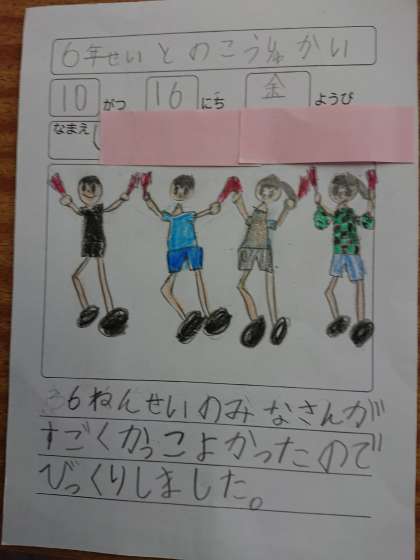 6年せいとのこうりゅうかい
10がつ16にち金ようび
なまえ
6ねんせいのみなさんが
すごくかっこよかったので
びっくりしました。